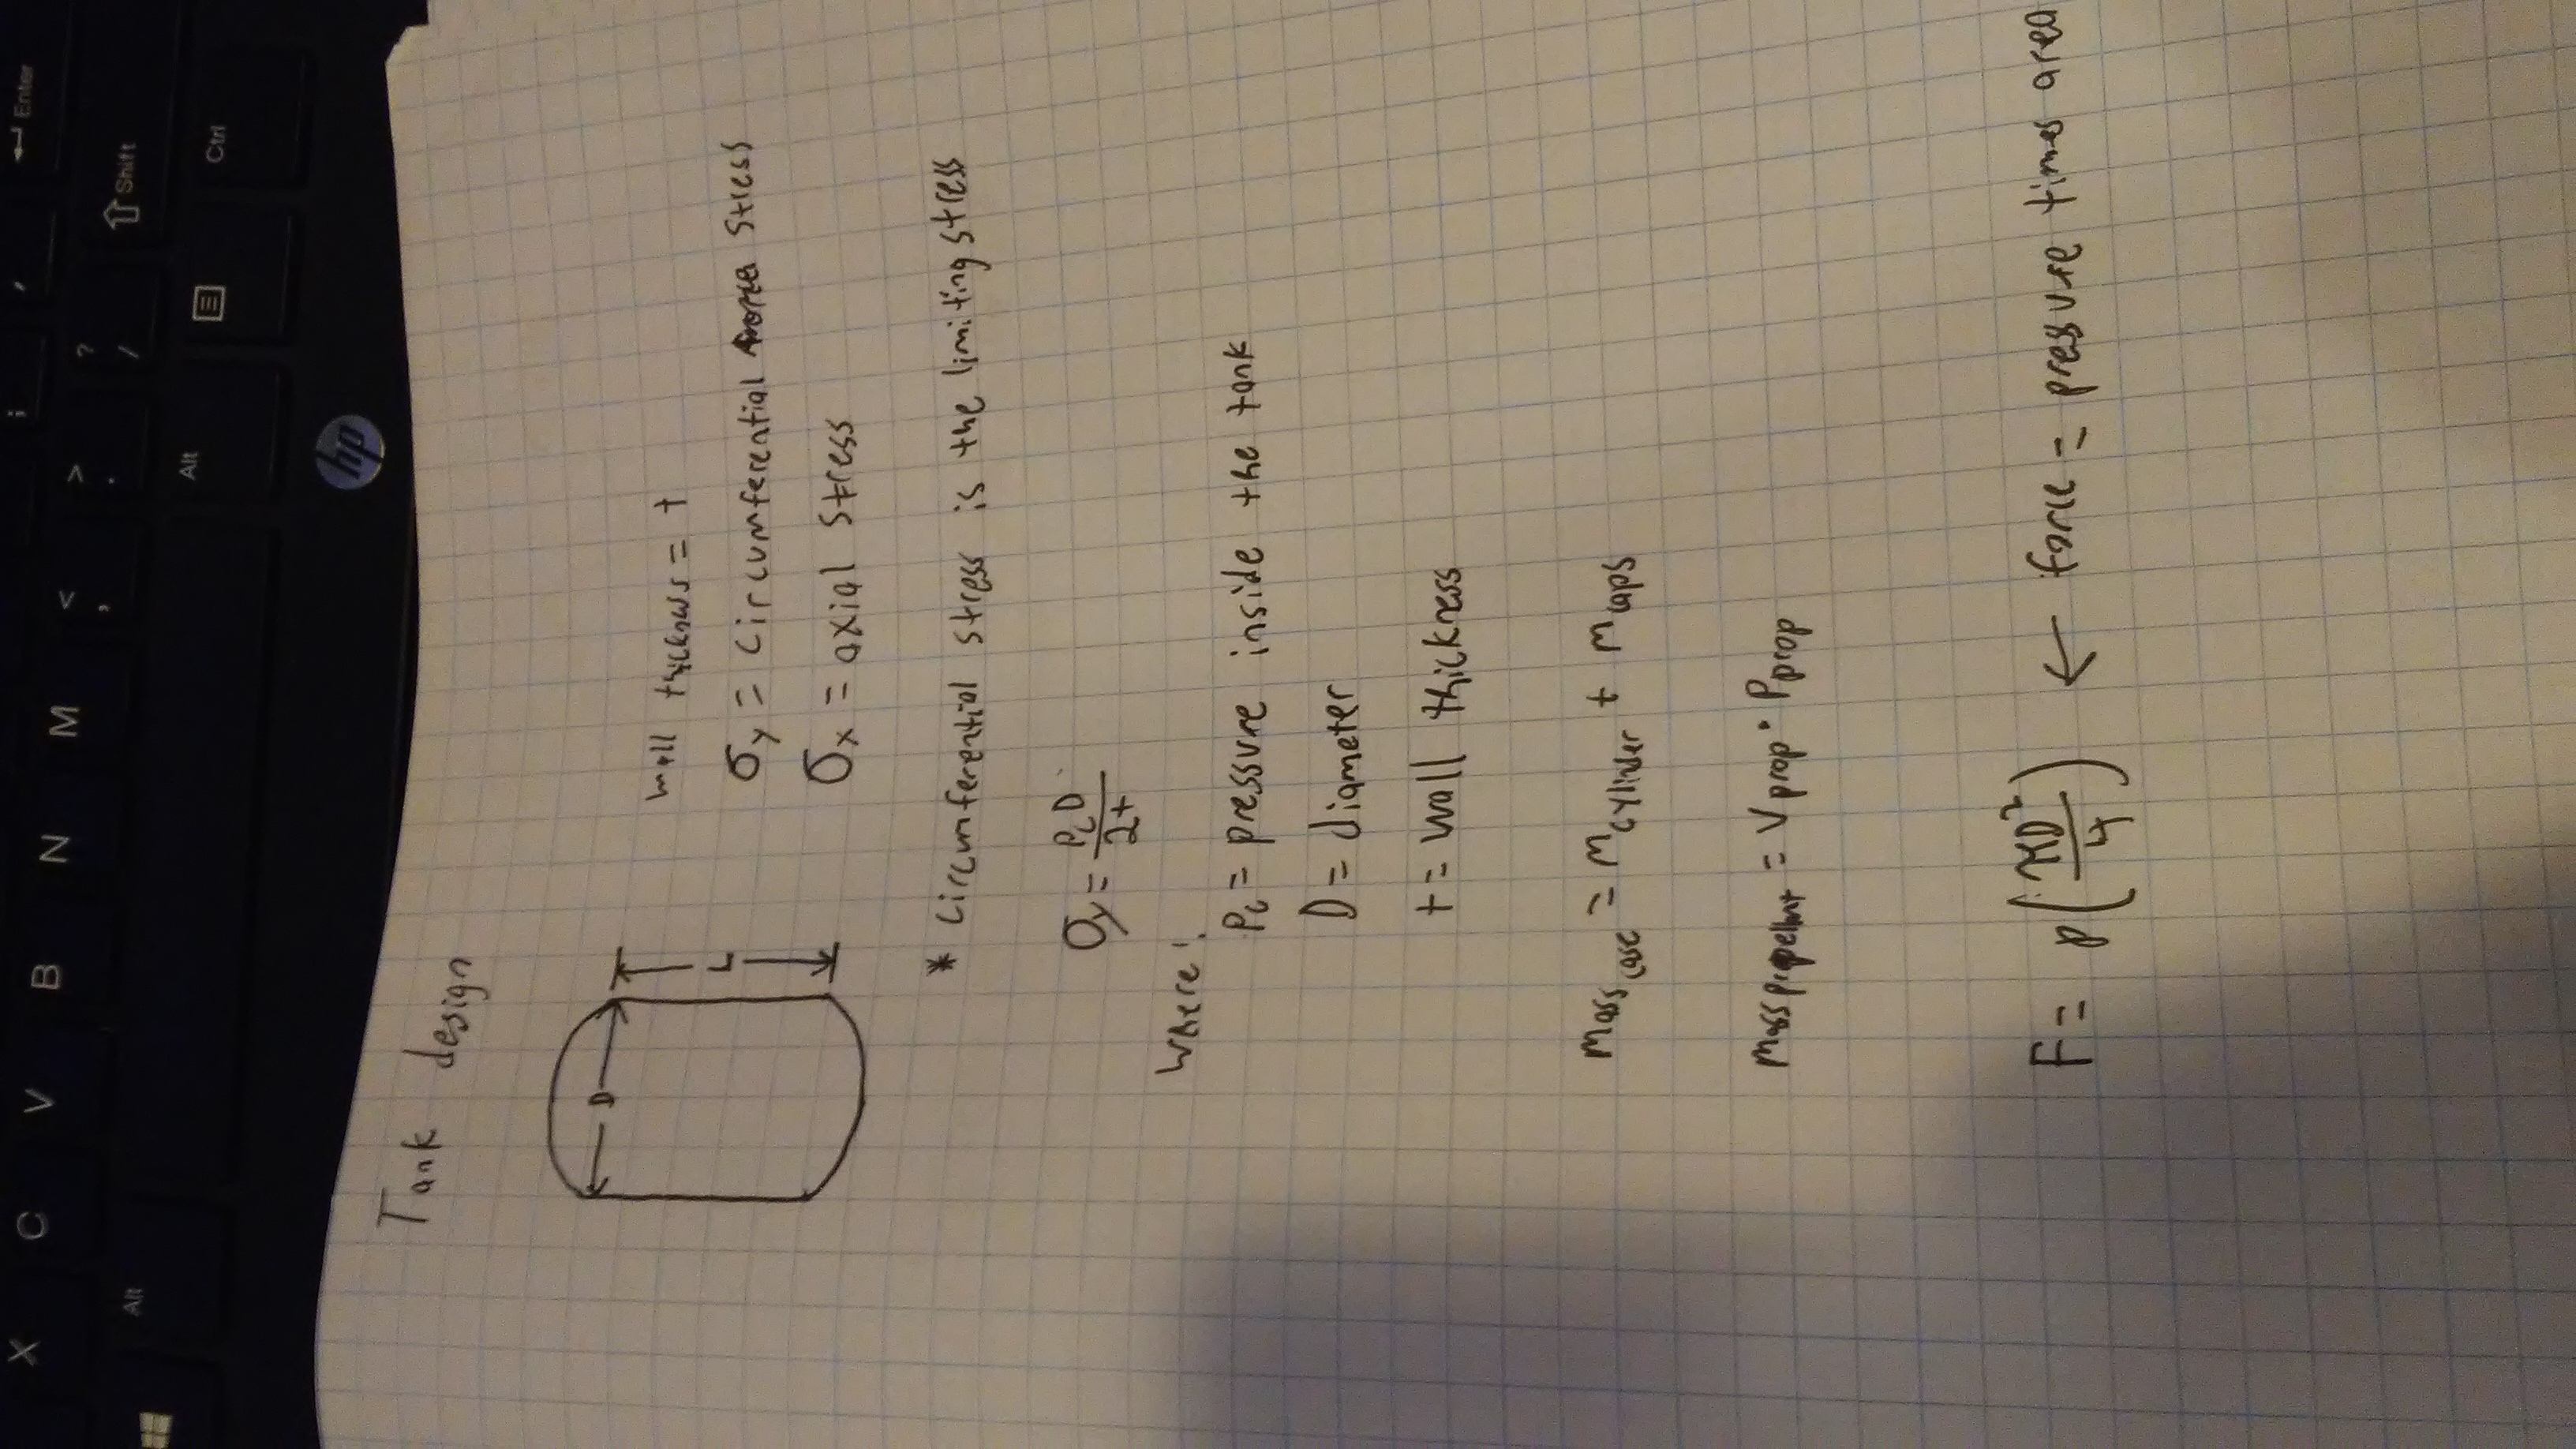 X C V B N M < , > . ? / ; ' Enter
Alt Alt Shift Ctrl
hp
Tank design
D
L
wall thickness = t
σy = circumferential stress
σx = axial stress
* circumferential stress is the limiting stress
σy = PcD / 2t
Where:
Pc = pressure inside the tank
D = diameter
t = wall thickness
Mass case = m cylinder + m caps
mass propellant = V prop · ρ prop
F = p(πD²/4) ← force = pressure times area